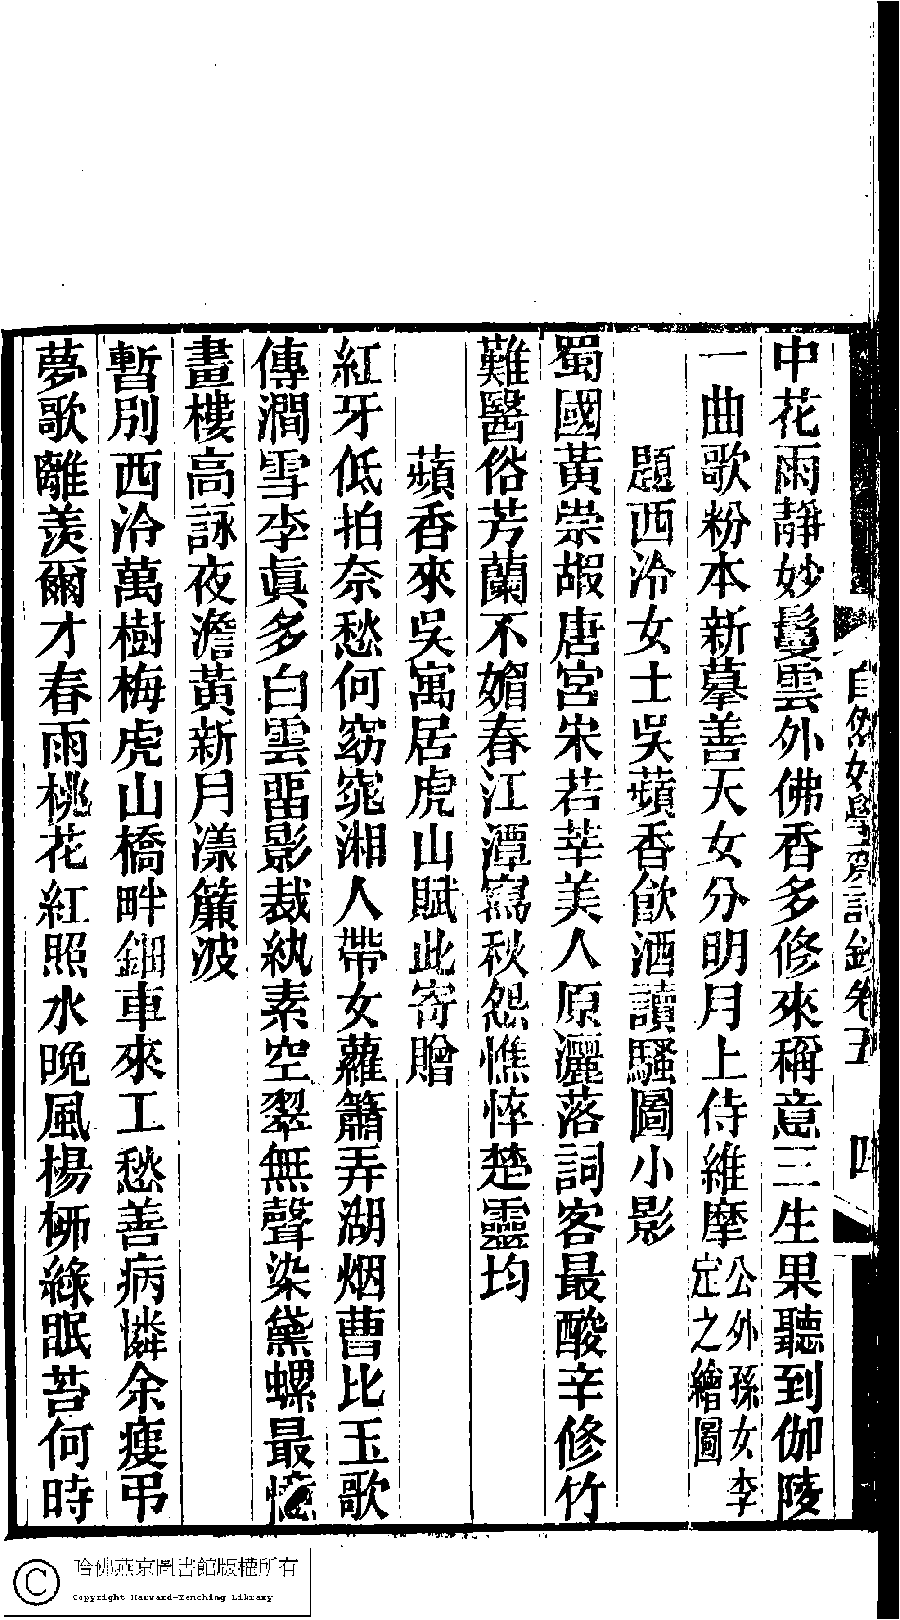 自然好學齋詩鈔卷五 四
中花雨靜妙鬘雲外佛香多修來稱意三生果聽到伽陵
一曲歌粉本新摹善天女分明月上侍維摩公外孫女李定之繪圖
題西泠女士吳蘋香飲酒讀騷圖小影
蜀國黃崇嘏唐宮宋若莘美人原灑落詞客最酸辛修竹
難醫俗芳蘭不媚春江潭寫秋怨憔悴楚靈均
蘋香來吳寓居虎山賦此寄贈
紅牙低拍奈愁何窈窕湘人帶女蘿簫弄湖烟曹比玉歌
傳澗雪李眞多白雲畱影裁紈素空翠無聲染黛螺最憶
畫樓高詠夜澹黃新月漾簾波
暫別西泠萬樹梅虎山橋畔鈿車來工愁善病憐余瘦弔
夢歌離羨爾才春雨桃花紅照水晚風楊柳綠眠苔何時
哈佛燕京圖書館版權所有
Copyright Harvard-Yenching Library